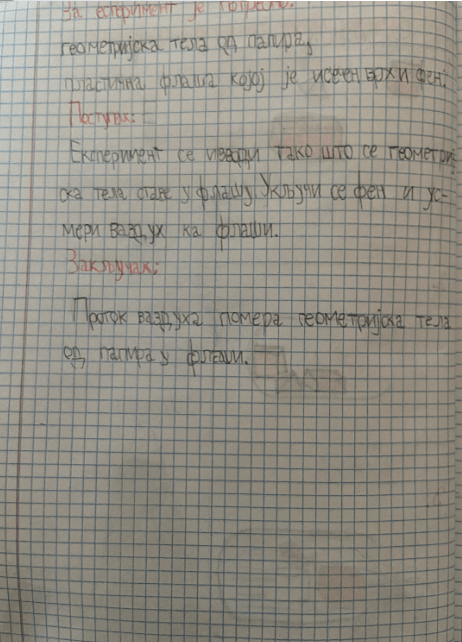 За еспримент је потребно:
геометријска тела од папира,
пластична флаша којој је исечен врх и фен.
Поступак:
Експеримент се изводи тако што се геометриј-
ска тела ставе у флашу. Укључи се фен и ус-
мери ваздух ка флаши.
Закључак:
Проток ваздуха помера геометријска тела
од папира у флаши.